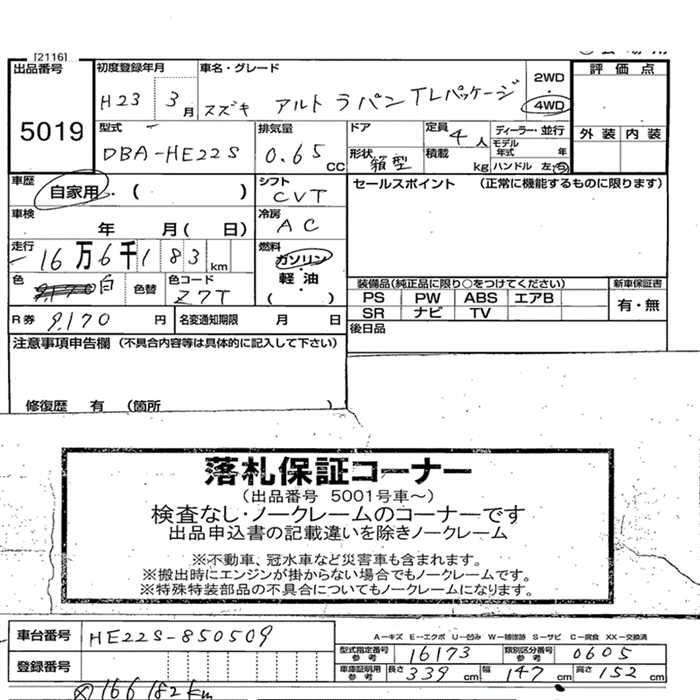 [2116]
出品番号
5019
初度登録年月
H23 3月
車名・グレード
スズキ アルト ラパン TLパッケージ
2WD
・
4WD
評価点
外装 内装
型式
DBA-HE22S
排気量
0.65 CC
ドア
形状
箱型
定員
4人
積載 kg
ディーラー・並行
モデル年式 年
ハンドル 左・右
車歴
自家用・( )
シフト
CVT
セールスポイント (正常に機能するものに限ります)
車検
年 月( 日)
冷房
AC
走行
16万6千183km
燃料
ガソリン
・
軽油
( )
色
白
色替
色コード
Z7T
装備品(純正品に限り○をつけてください)
PS PW ABS エアB
SR ナビ TV
新車保証書
有・無
R券 9,170 円
名変通知期限 月 日
後日品
注意事項申告欄 (不具合内容等は具体的に記入して下さい)
修復歴 有 (箇所 )
落札保証コーナー
(出品番号 5001号車～)
検査なし・ノークレームのコーナーです
出品申込書の記載違いを除きノークレーム
※不動車、冠水車など災害車も含まれます。
※搬出時にエンジンが掛からない場合でもノークレームです。
※特殊特装部品の不具合についてもノークレームになります。
車台番号
HE22S-850509
A－キズ E－エクボ U－凹み W－補修跡 S－サビ C－腐食 XX－交換済
型式指定番号参考 16173
類別区分番号参考 0605
登録番号
車庫証明用参考 長さ 339 cm 幅 147 cm 高さ 152 cm
166182km